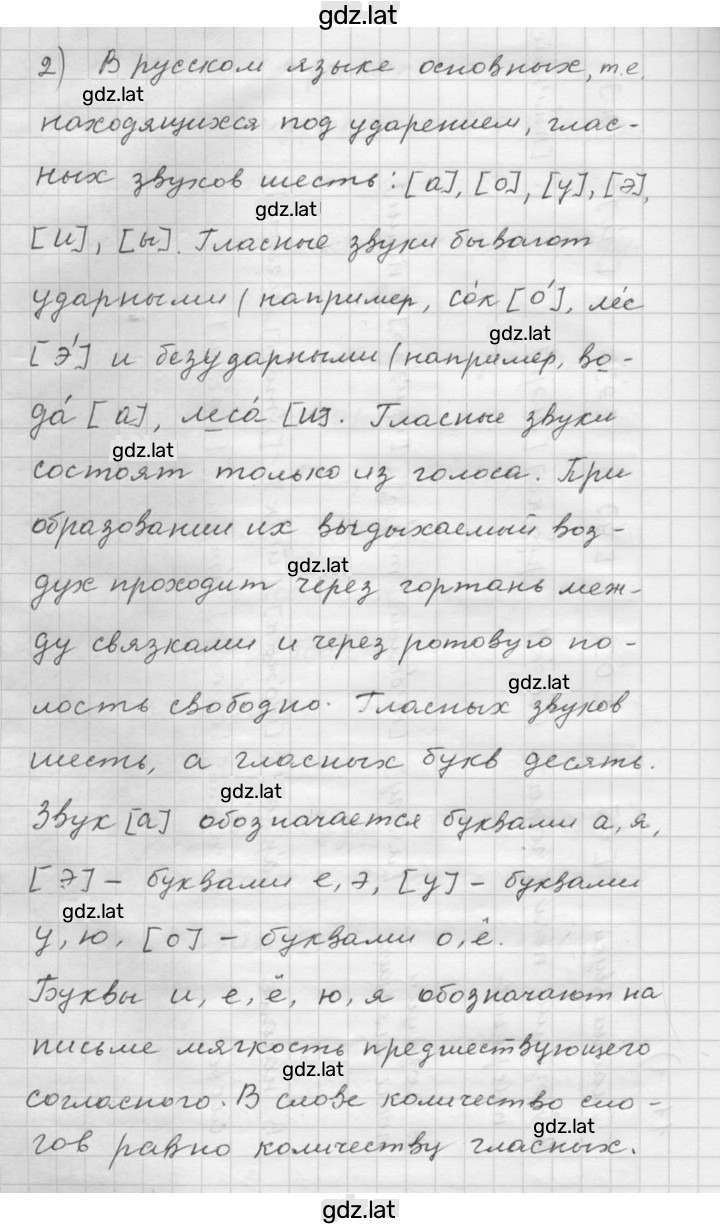 gdz.lat
2) В русском языке основных, т.е.
gdz.lat
находящихся под ударением, глас-
ных звуков шесть: [а], [о], [у], [э],
gdz.lat
[и], [ы]. Гласные звуки бывают
ударными (например, со́к [о́], ле́с
gdz.lat
[э́] и безударными (например, во-
да́ [а], леса́ [и]. Гласные звуки
gdz.lat
состоят только из голоса. При
образовании их выдыхаемый воз-
gdz.lat
дух проходит через гортань меж-
ду связками и через ротовую по-
gdz.lat
лость свободно. Гласных звуков
шесть, а гласных букв десять.
gdz.lat
Звук [а] обозначается буквами а, я,
[э] – буквами е, э, [у] – буквами
gdz.lat
у, ю, [о] – буквами о, ё.
Буквы и, е, ё, ю, я обозначают на
письме мягкость предшествующего
gdz.lat
согласного. В слове количество сло-
gdz.lat
гов равно количеству гласных.
gdz.lat